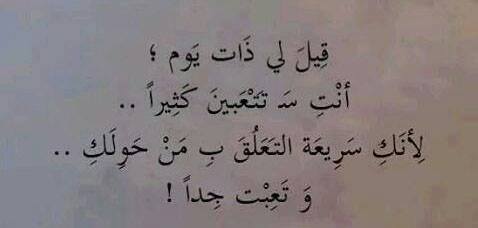 قِيلَ لي ذَات يَوم ؛
أنْتِ سَ تتَعْبينَ كَثِيراً ..
لِأنَكِ سَرِيعَة التَعَلُقَ بِ مَنْ حَوِلَكِ ..
وَ تَعِبْت جِداً !